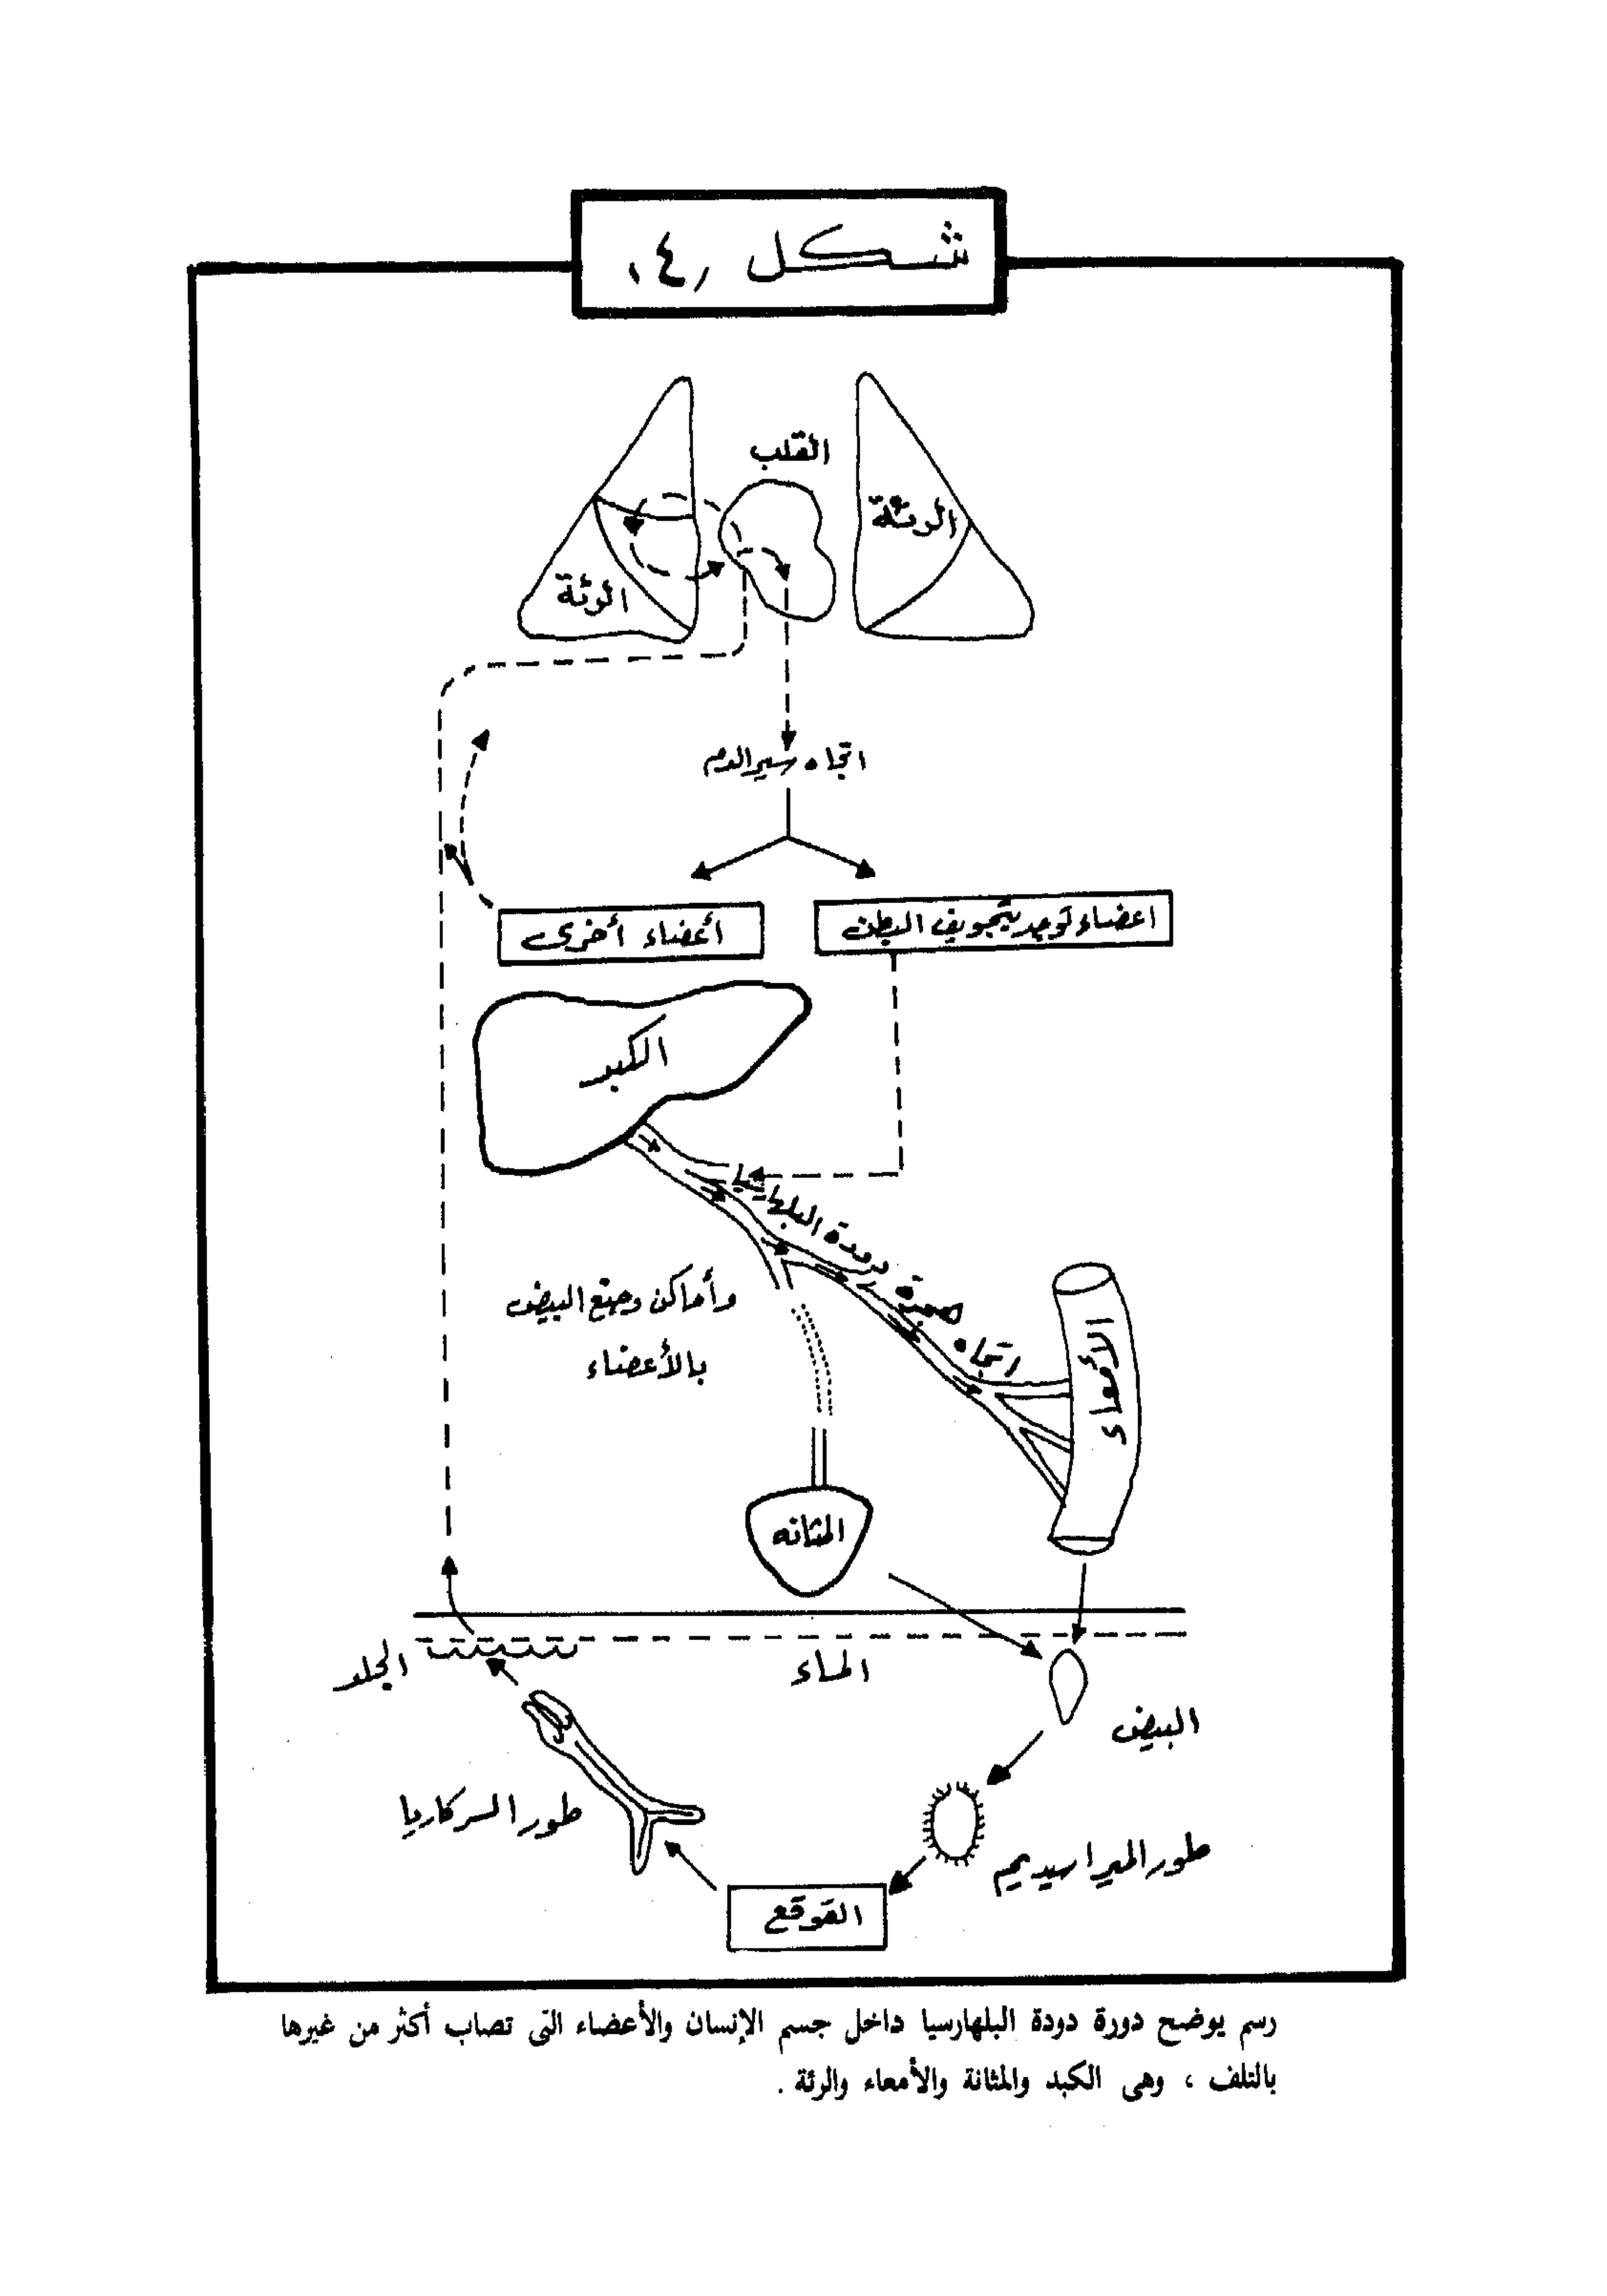 شكل (٤)
القلب
الرئة
الرئة
اتجاه سير الدم
أعضاء أخرى
اعضاء توجد بتجويف البطن
الكبد
اتجاه هجرة دودة البلهارسيا
وأماكن وضع البيض
بالأعضاء
الأمعاء
المثانه
الجلد
الماء
البيض
طور السركاريا
طور الميراسيديم
القوقع
رسم يوضح دورة دودة البلهارسيا داخل جسم الإنسان والأعضاء التى تصاب أكثر من غيرها
بالتلف ، وهى الكبد والمثانة والأمعاء والرئة .